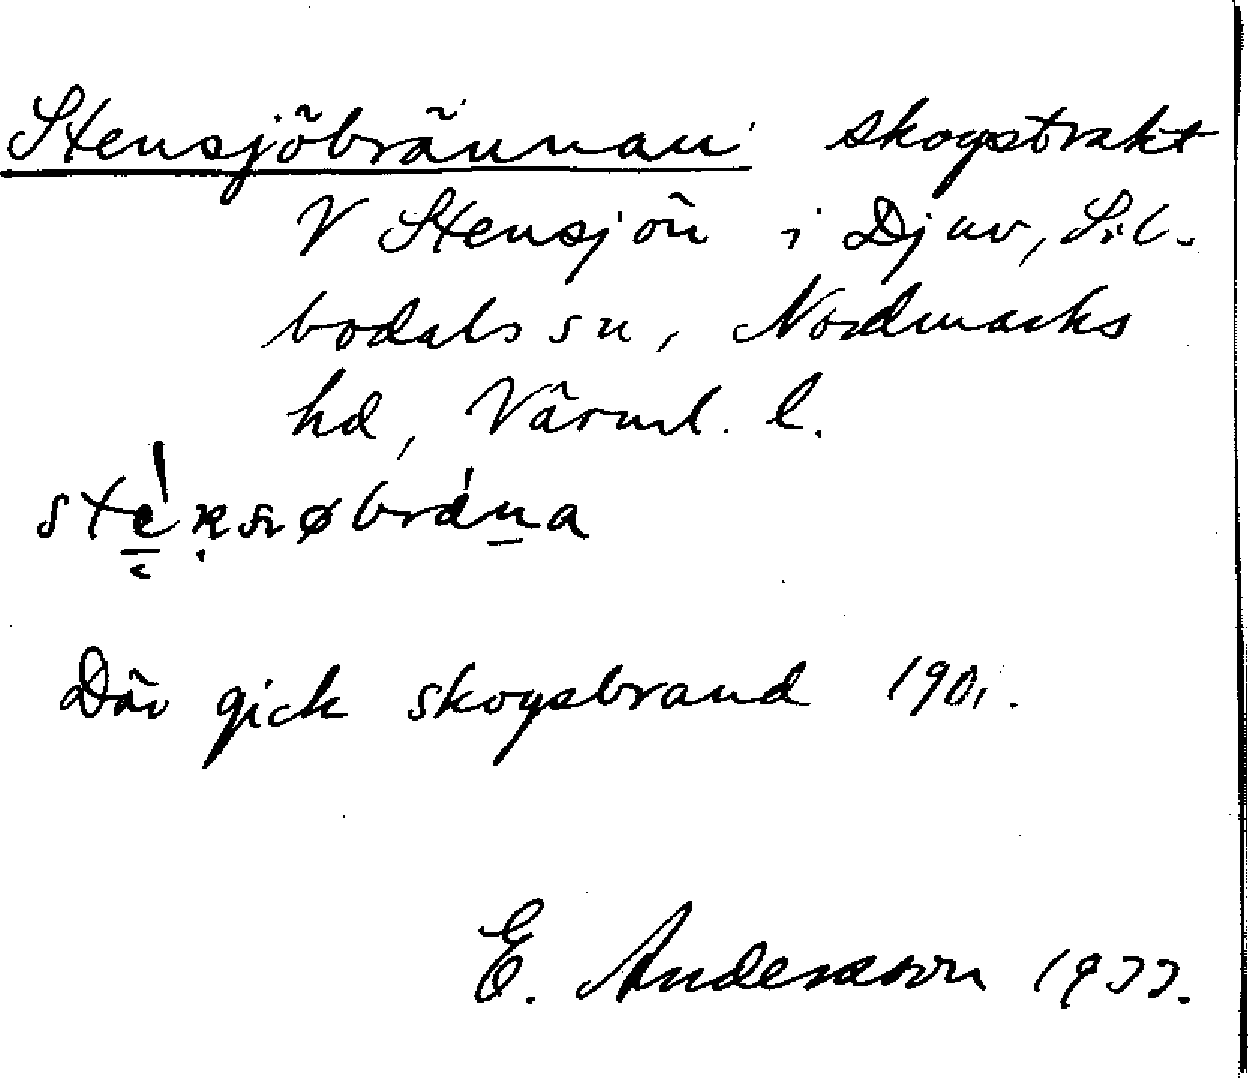 Stensjöbrännan skogstrakt
V Stensjön i Djuv, Sil-
bodals sn, Nordmarks
hd, Värml. l.
Där gick skogsbrand 1901.
E. Andersson 1933.